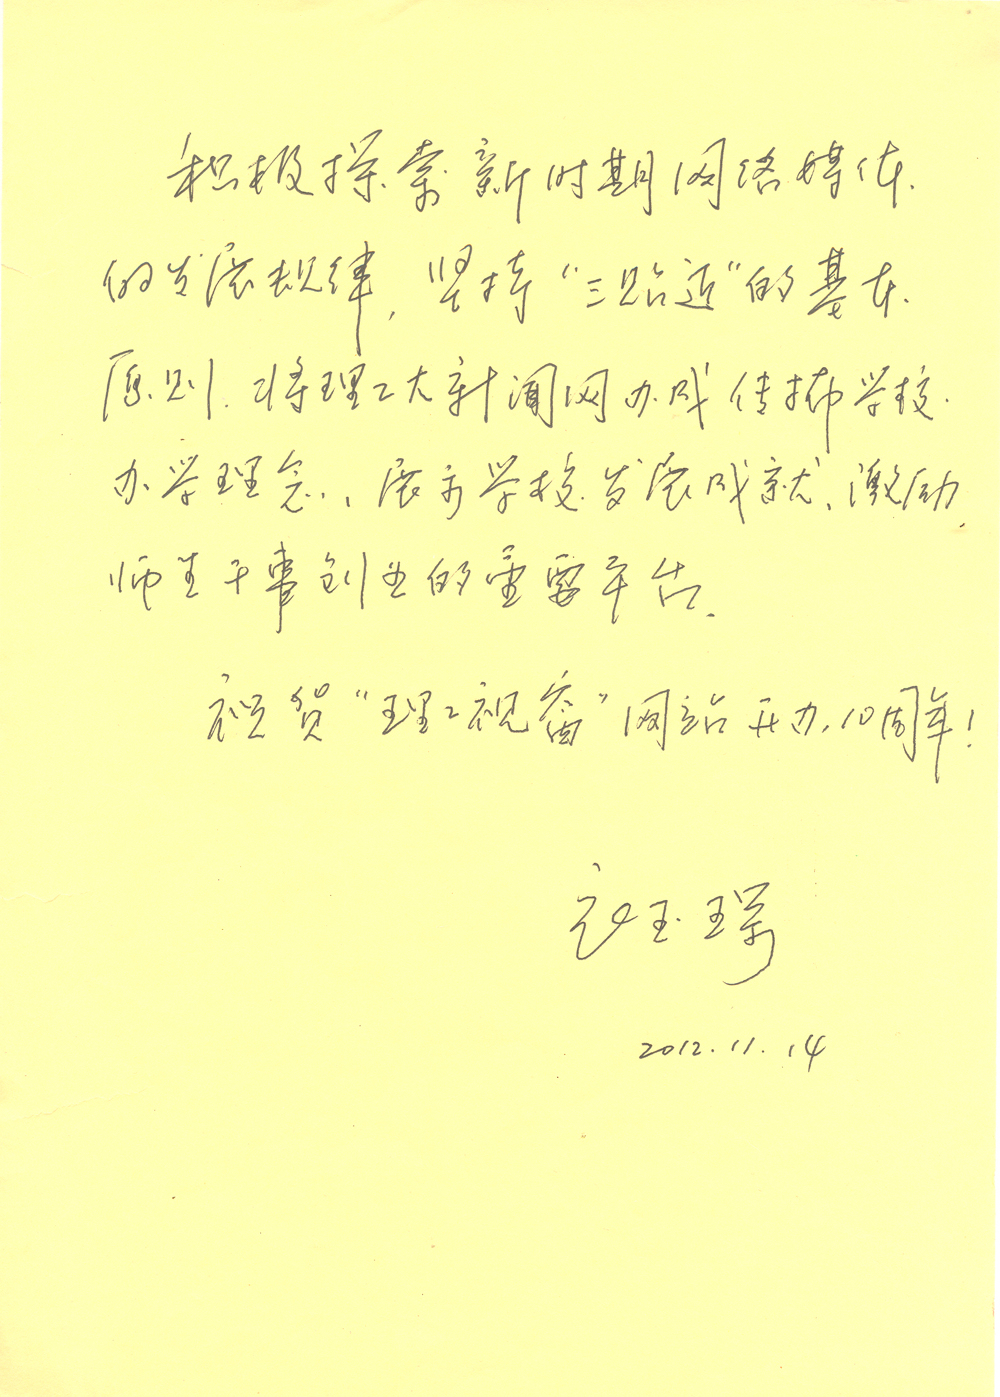 积极探索新时期网络媒体
的发展规律，坚持“三贴近”的基本
原则，将理工大新闻网办成传播学校
办学理念、展示学校发展成就、激励
师生干事创业的重要平台。
祝贺“理工视窗”网站开办10周年！
玉
2012.11.14